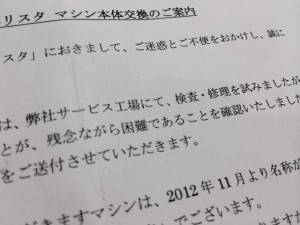 リスタ マシン本体交換のご案内
リスタ」におきまして、ご迷惑とご不便をおかけし、誠に
は、弊社サービス工場にて、検査・修理を試みましたが
ことが、残念ながら困難であることを確認いたしました
をご送付させていただきます。
だきますマシンは、2012年11月より名称が
でございます。